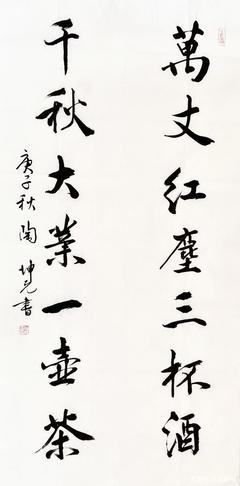 萬丈紅塵三杯酒
千秋大業一壺茶
庚子秋陶坤元書